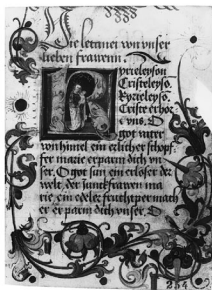 Die letaney von vnser
lieben frawenn.
kyrieleyson
Cristeleyso.
kyrieleyso.
Criste erhor
vns. O
got vater
von himel ein erlicher schopf
fer marie erparm dich vn
ser. O got sun ein erloser der
welt. der junckfrawen ma
rie, ein edele frucht, per math
er erparm dich vnser. O
254